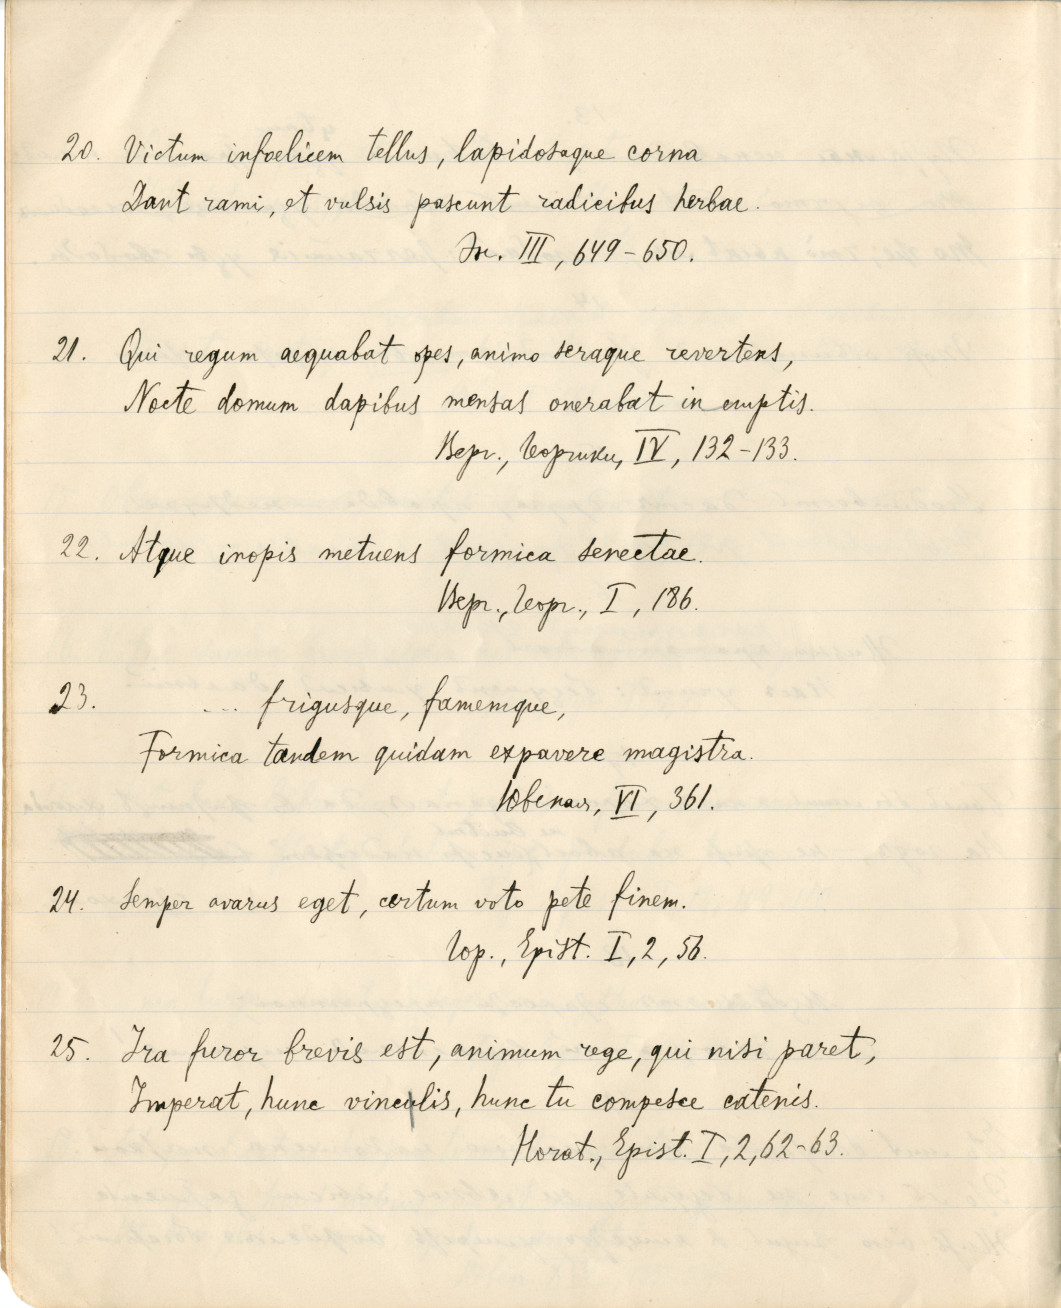 20. Victum infoelicem tellus, lapidosaque corna
Dant rami, et vulsis pascunt radicibus herbae.
Эн. III, 649-650.
21. Qui regum aequabat opes, animo seraque revertens,
Nocte domum dapibus mensas onerabat in emptis.
Верг., Георгики, IV, 132-133.
22. Atque inopis metuens formica senectae.
Верг., Георг., I, 186.
23. ... frigusque, famemque,
Formica tandem quidam expavere magistra.
Ювенал, VI, 361.
24. Semper avarus eget, certum voto pete finem.
Гор., Epist. I, 2, 56.
25. Ira furor brevis est, animum rege, qui nisi paret,
Imperat, hunc vinculis, hunc tu compesce catenis.
Horat., Epist. I, 2, 62-63.